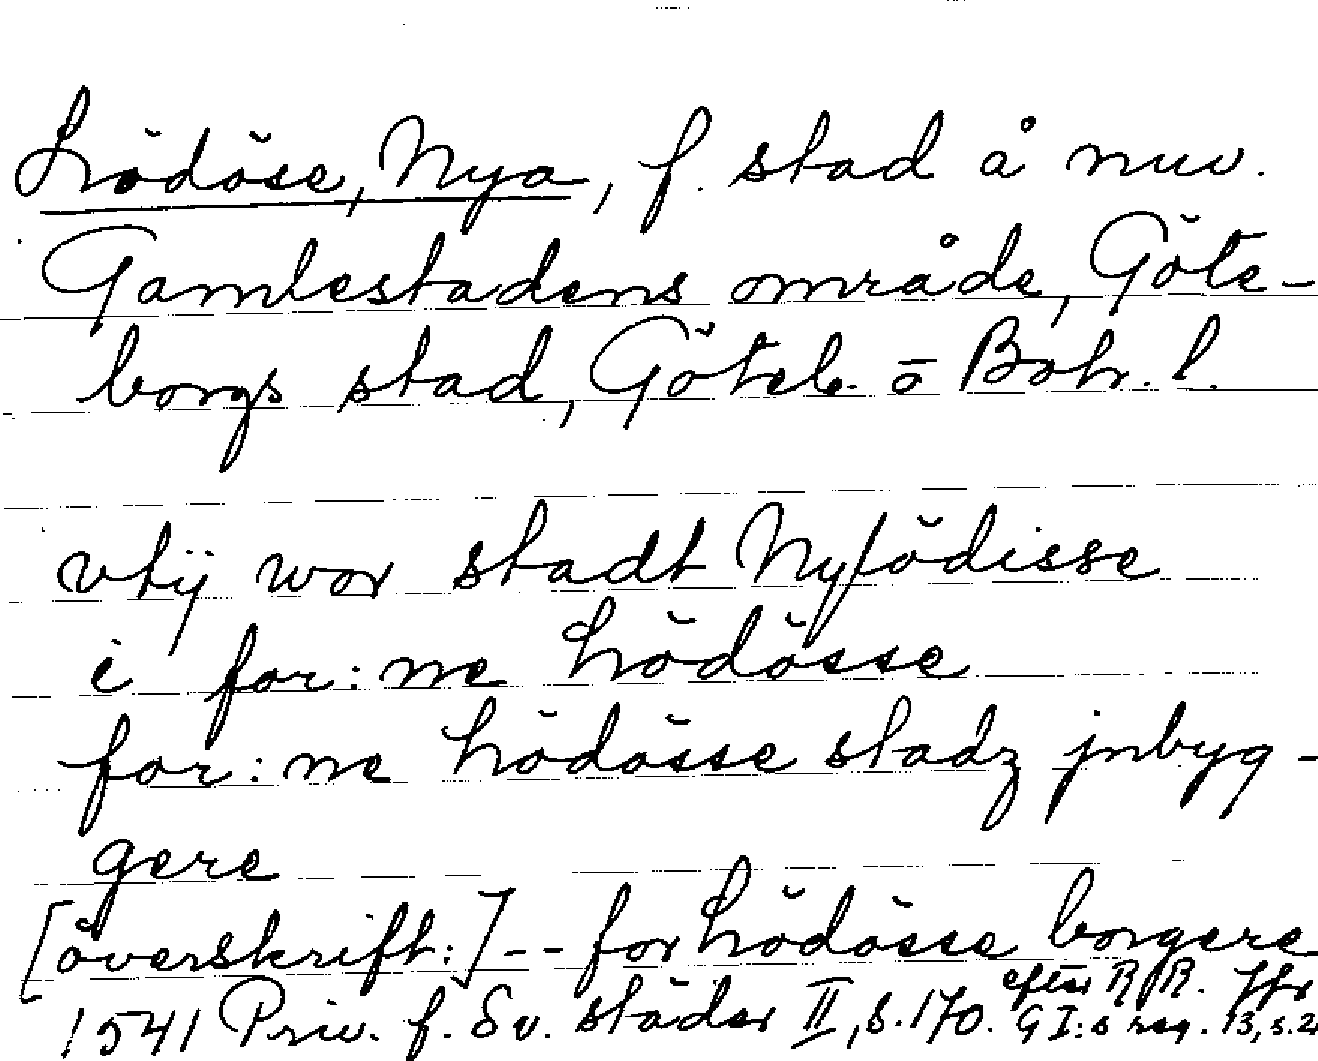 Lödöse, Nya, f. stad å nuv.
Gamlestadens område, Göte-
borgs stad, Göteb. o Boh. l.
vtij wor stadt Nylödisse
i for:ne Lödösse
for:ne Lödösse stadz jnbyg-
gere
[överskrift:] -- for Lödösse borgere
efter RR. Jfr
1541 Priv. f. Sv. städer II, s. 170. G I:s reg. 13, s. 2